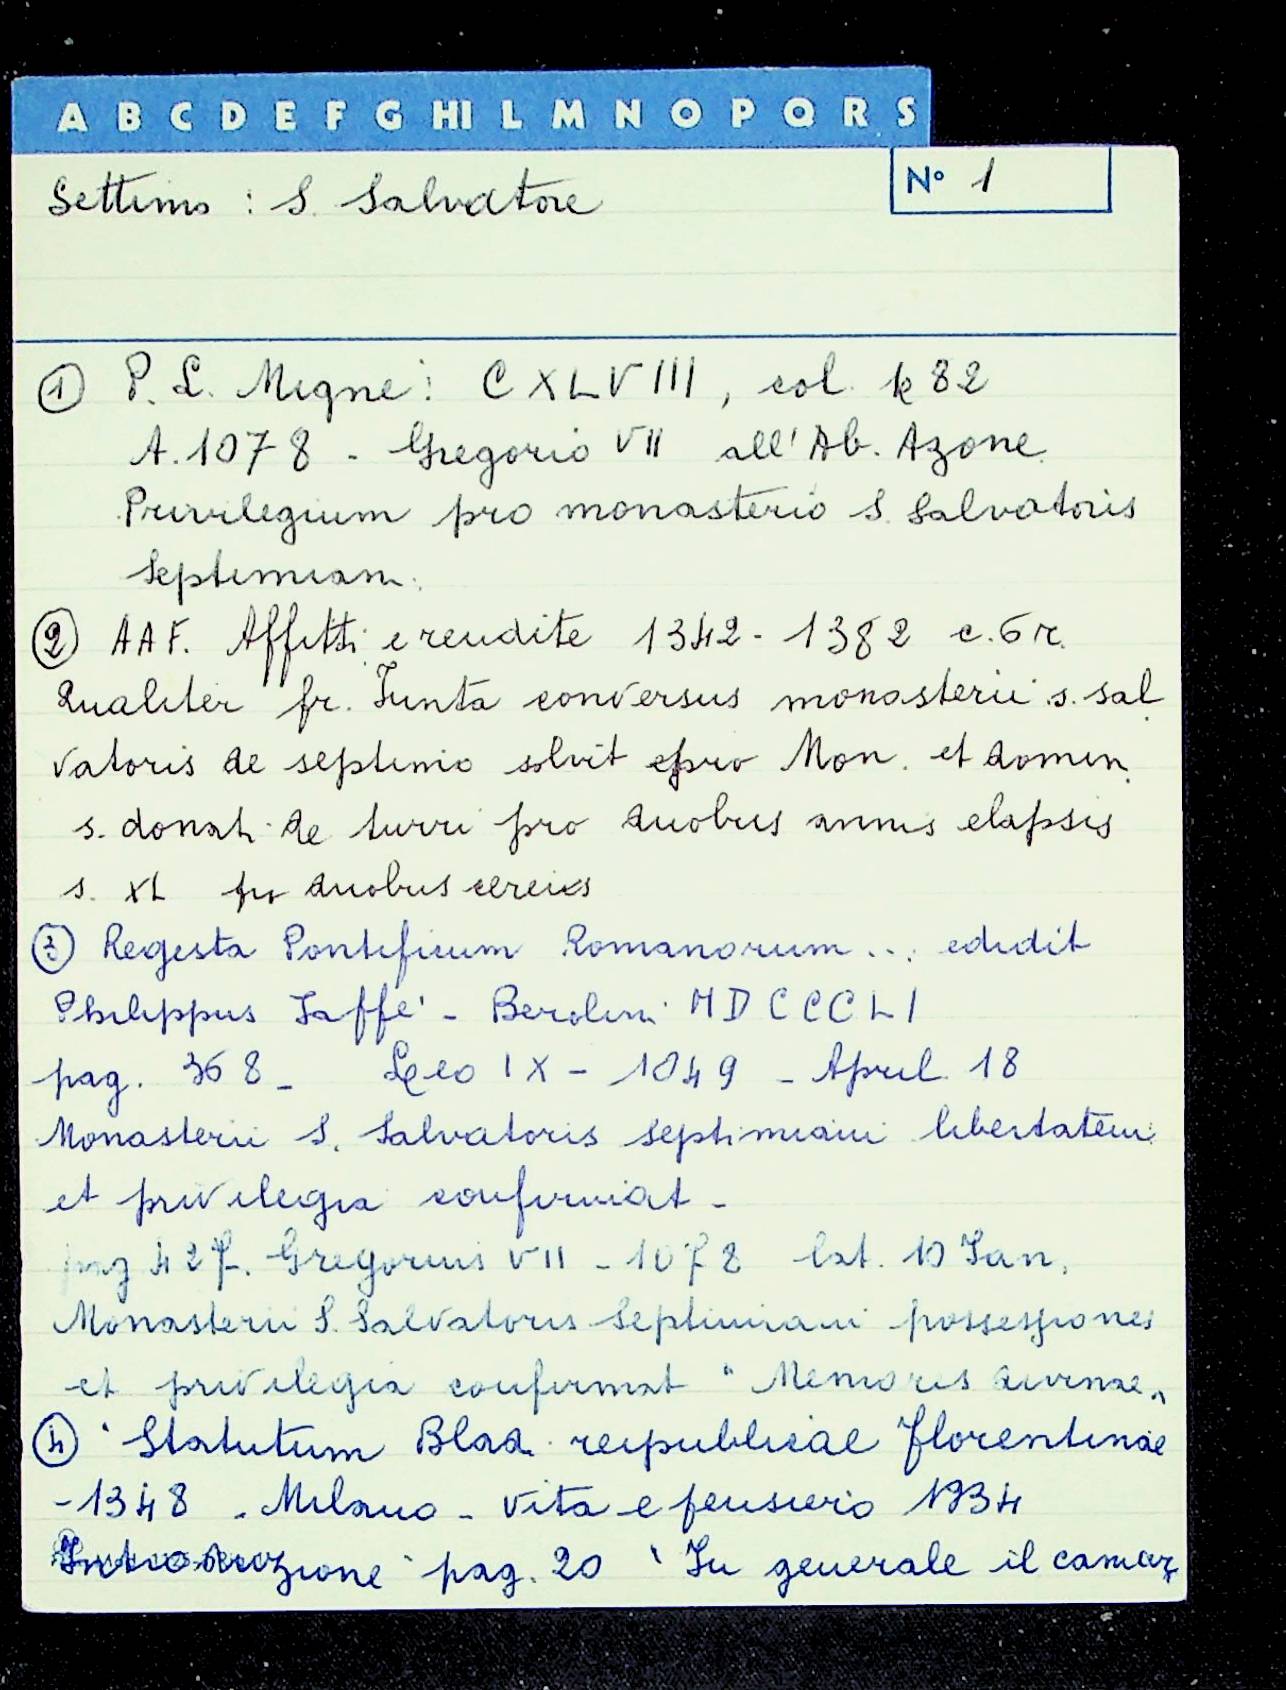 A B C D E F G HI L M N O P Q R S
Settimo : S. Salvatore
N° 1
① P. L. Migne: CXLVIII, col. 682
A. 1078 - Gregorio VII all'Ab. Azone
Privilegium pro monasterio S. Salvatoris
Septimiani.
② AAF. Affitti e rendite 1342-1382 c. 6 r.
Qualiter fr. Junta conversus monasterii s. Sal
vatoris de septimo solvit pro Mon. et domin.
s. donati de turri pro duobus annis elapsis
s. XL pro duobus cereis
③ Regesta Pontificum Romanorum... edidit
Philippus Jaffé - Berolini MDCCCLI
pag. 368 - Leo IX - 1049 - April. 18
Monasterii S. Salvatoris septimiani libertatem
et privilegia confirmat -
pag 427. Gregorius VII - 1078 Lat. 10 Jan.
Monasterii S. Salvatoris Septimiani possessiones
et privilegia confirmat "Memores divinae"
④ Statutum Blad. reipublicae florentinae
-1348 - Milano - Vita e pensiero 1934
Introduzione pag. 20 "In generale il camar